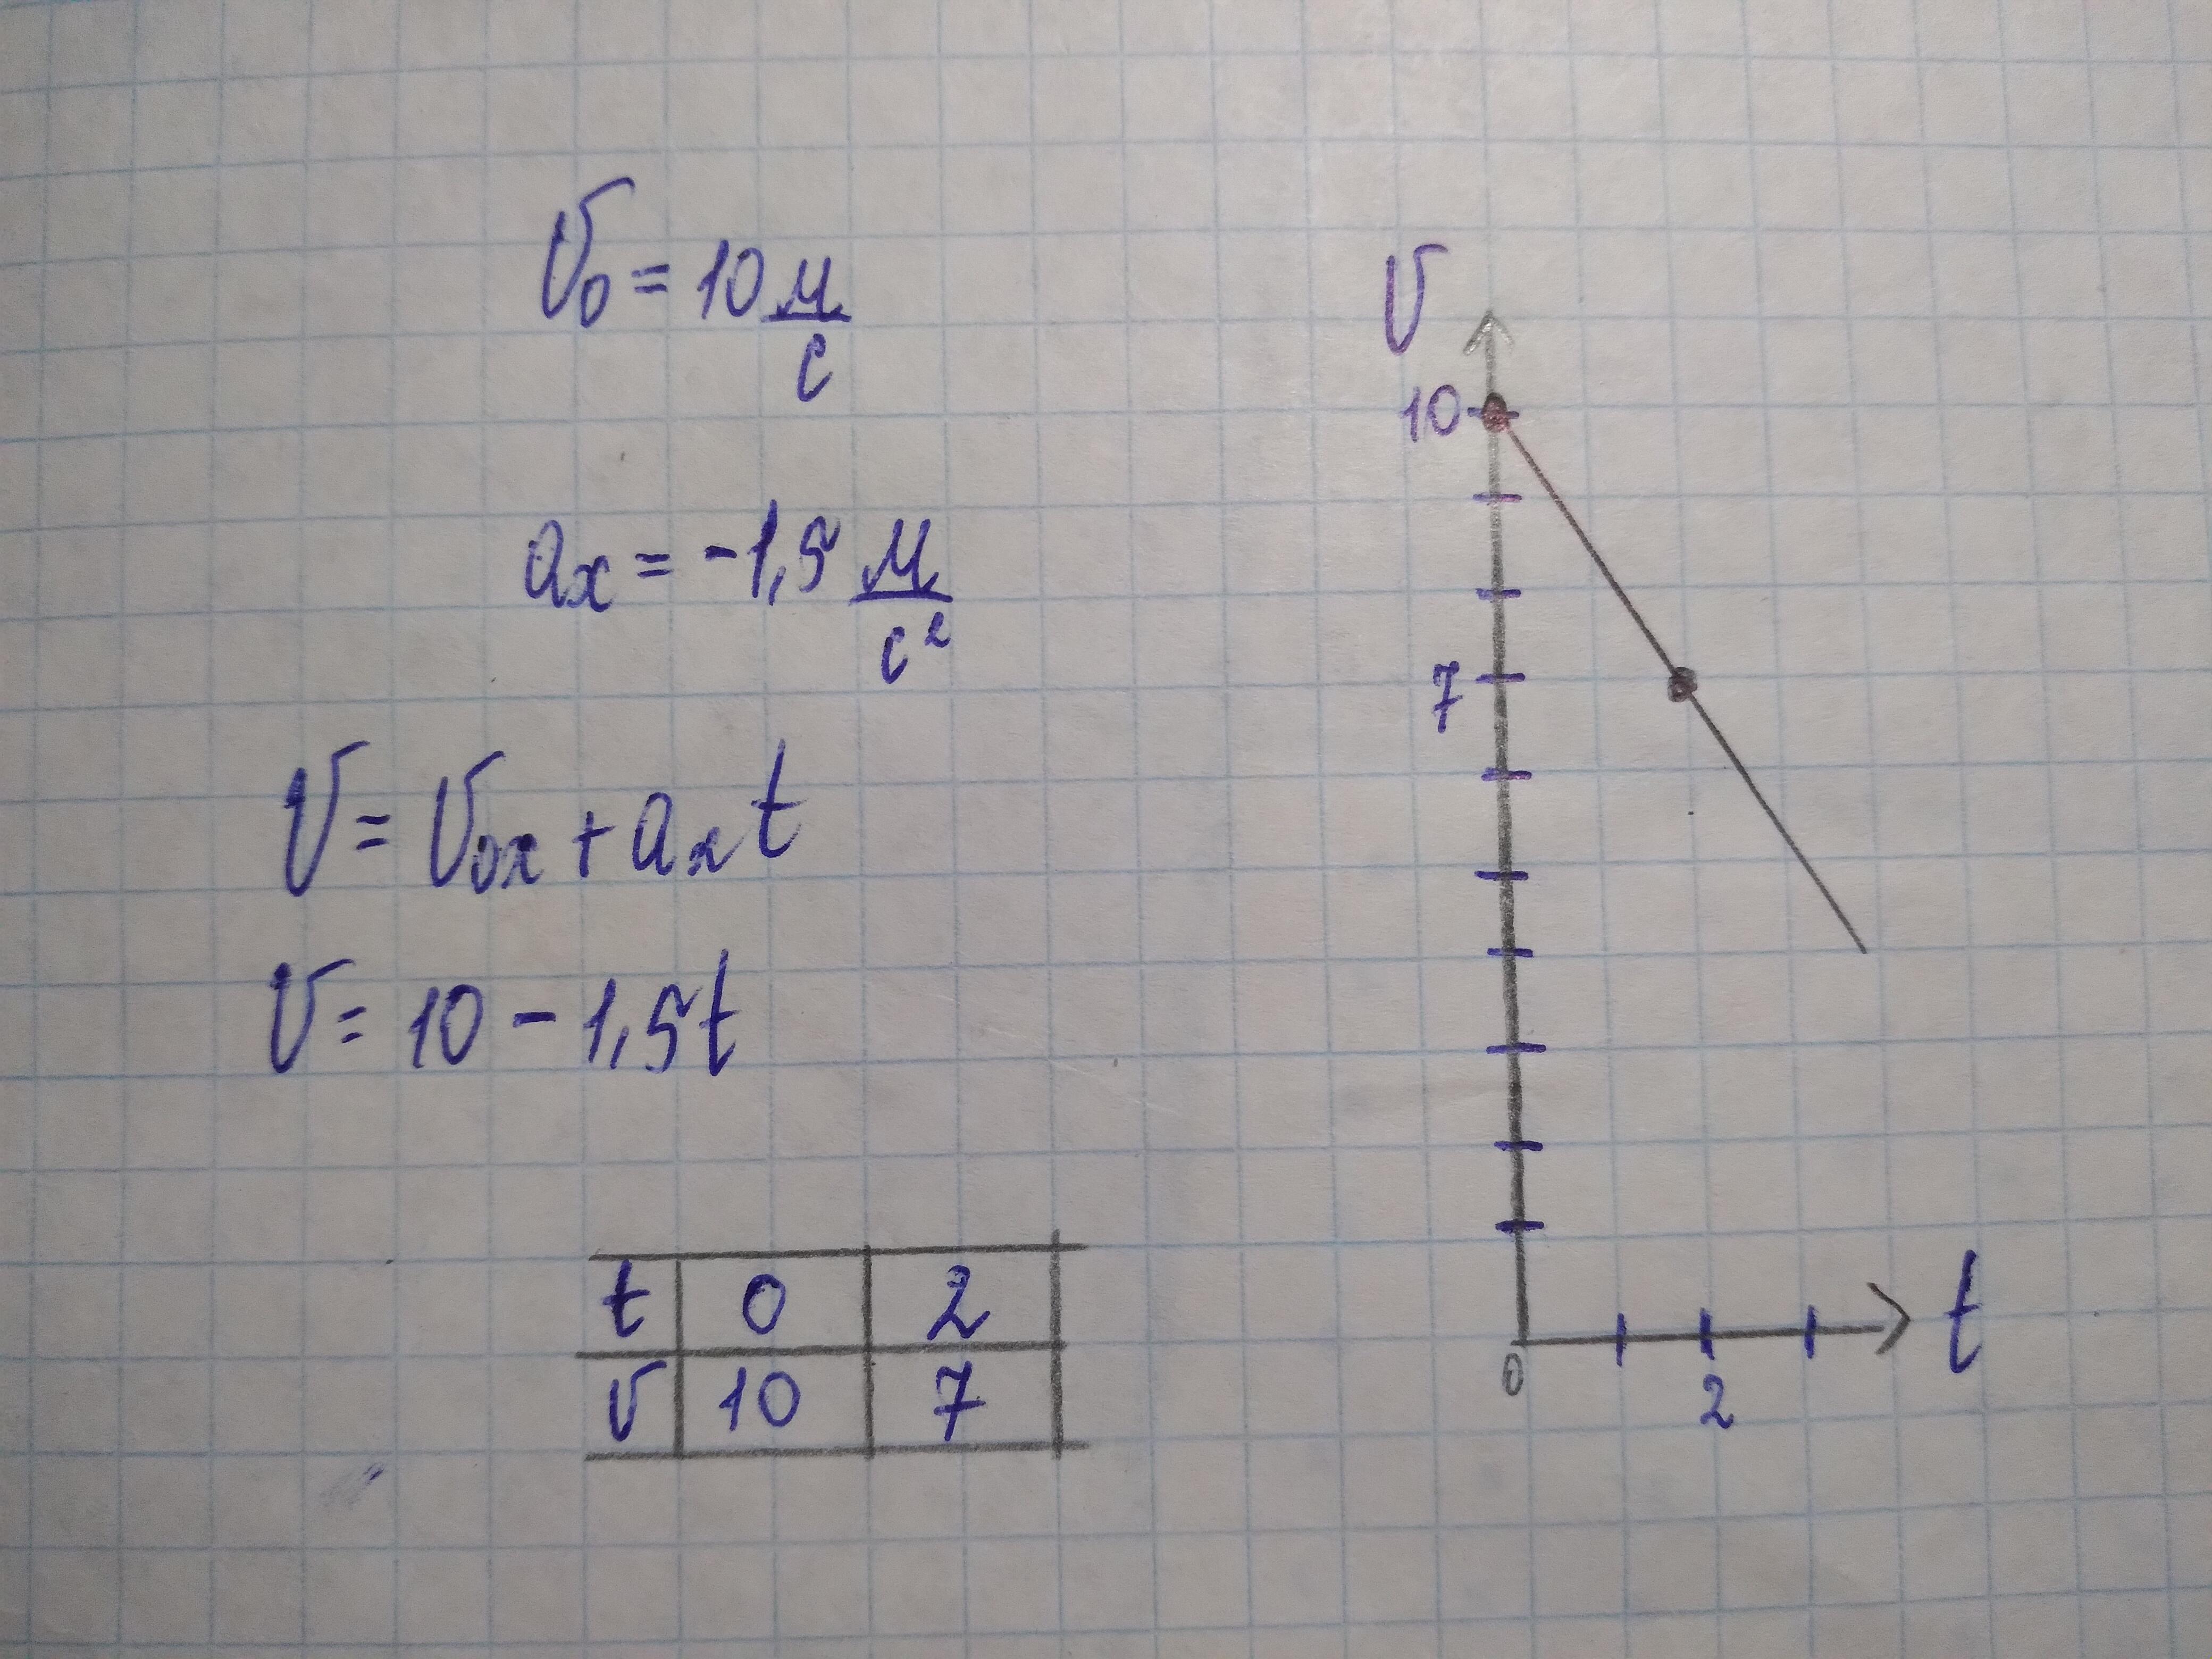 V₀ = 10 м/с
aₓ = -1,5 м/с²
V = V₀ₓ + aₓt
V = 10 - 1,5t
t 0 2
V 10 7
V
10
7
0
2
t